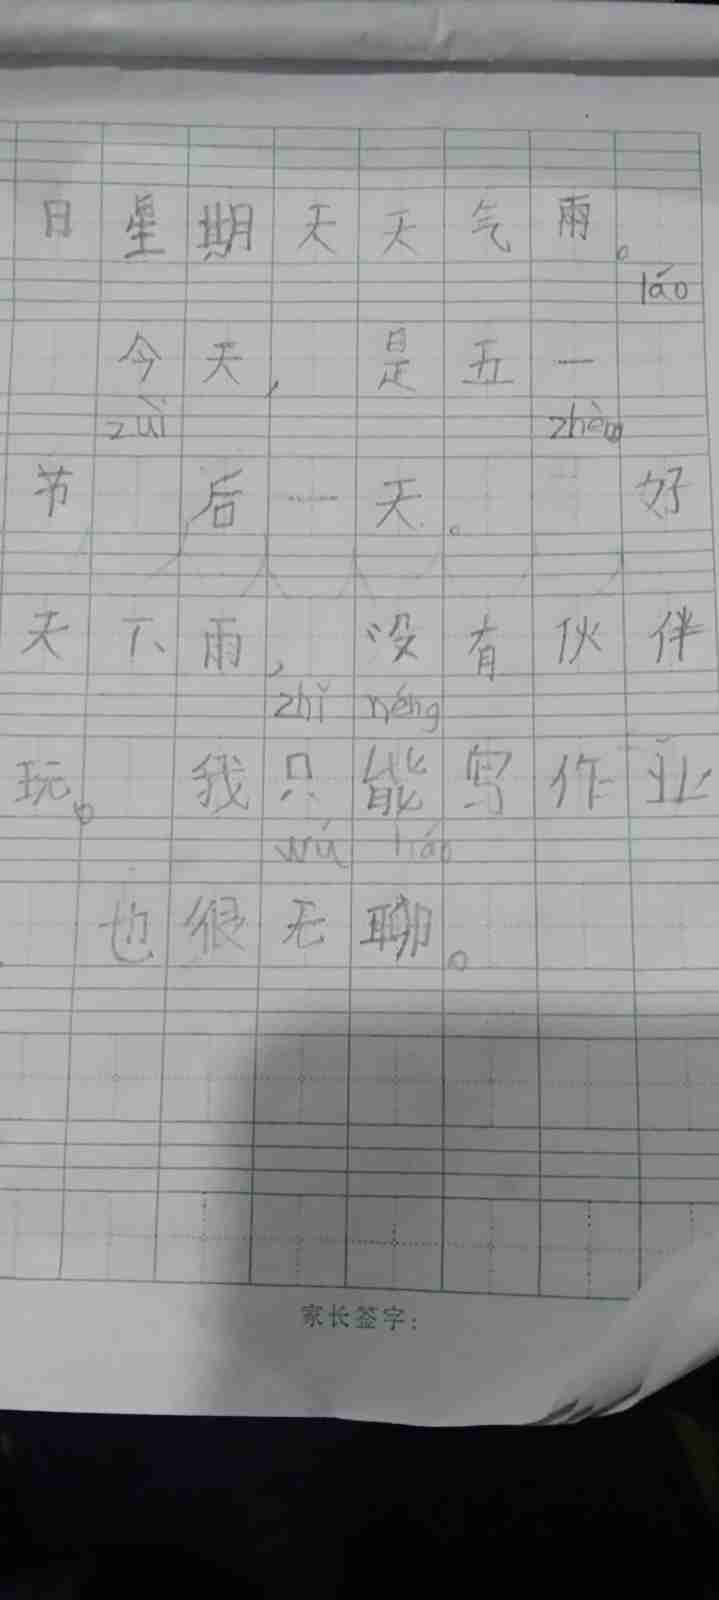 日星期天天气雨。
láo
今天，是五一
zuì zhèng
节 后一天。 好
天下雨，没有伙伴
zhǐ néng
玩。我只能写作业
wú liáo
也很无聊。
家长签字：